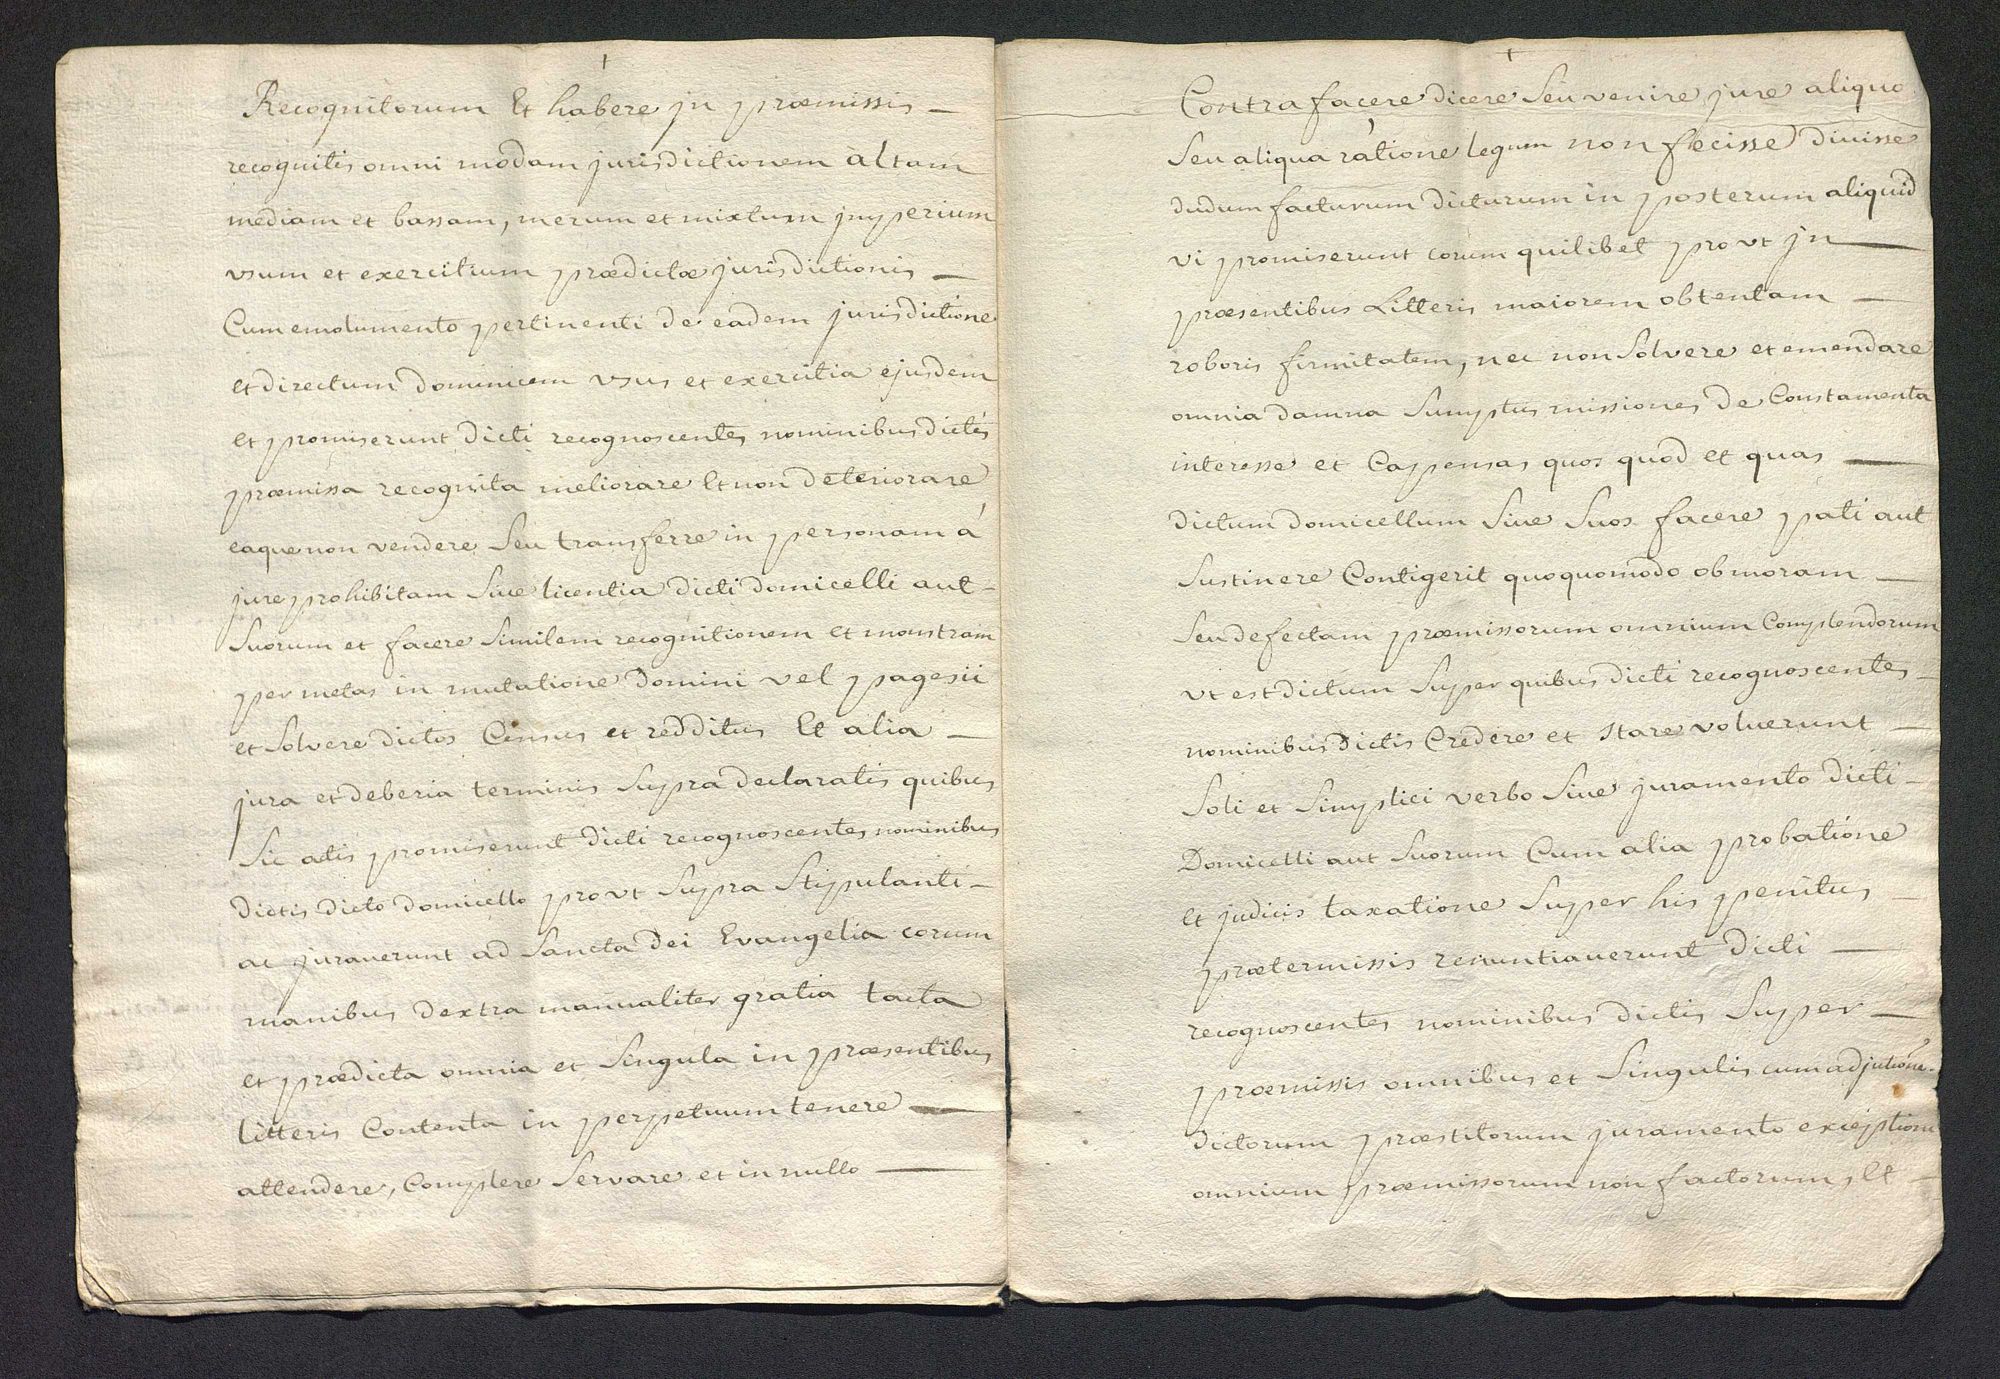 Recognitorum Et habere jn præmissis —
recognitis omni modam jurisdictionem altam
mediam et bassam, merum et mixtum jmperium
vsum et exercitium prædictæ jurisdictionis —
Cum emolumento pertinenti de eadem jurisdictione
et directum dominicem vsus et exercitia ejusdem
et promiserunt dicti recognoscentes nominibus dictis
præmissa recognita meliorare Et non deteriorare
eaque non vendere seu transferre in personam á
jure prohibitam sive licentia dicti domicelli aut -
suorum et facere similem recognitionem et monstram
per metas in mutatione domini vel pagesii
et solvere dictos Census et redditus Et alia —
jura et deberia terminis supra declaratis quibus
Sic actis promiserunt dicti recognoscentes nominibus
dictis dicto domicello prout supra stipulanti -
ac juraverunt ad sancta dei Evangelia eorum
manibus dextra manualiter gratia tacta
et prædicta omnia et singula in præsentibus
litteris Contenta in perpetuum tenere —
attendere, Complere servare et in nullo —
Contra facere dicere seu venire jure aliquo
seu aliqua ratione legum non fecisse divisse
dudum facturum dicturum in posterum aliquid
vi promiserunt eorum quilibet prout jn —
præsentibus Litteris maiorem obtentam —
roboris firmitatem, nec non solvere et emendare
omnia damna sumptus missiones de Constamenta
interesse et Caspensas quos quod et quas —
dictum domicellum sive suos facere pati aut
sustinere Contigerit quoquomodo ob moram —
seu defectam præmissorum omnium Complendorum
vt est dictum super quibus dicti recognoscentes -
nominibus dictis Credere et stare voluerunt -
soli et simplici verbo sive juramento dicti -
Domicelli aut suorum Cum alia probatione
et judicis taxatione super his penitus -
prætermissis renuntiaverunt dicti —
recognoscentes nominibus dictis super —
præmissis omnibus et singulis cum adjutione.
dictorum præstitorum juramento exceptioni
omnium præmissorum non factorum, Et -